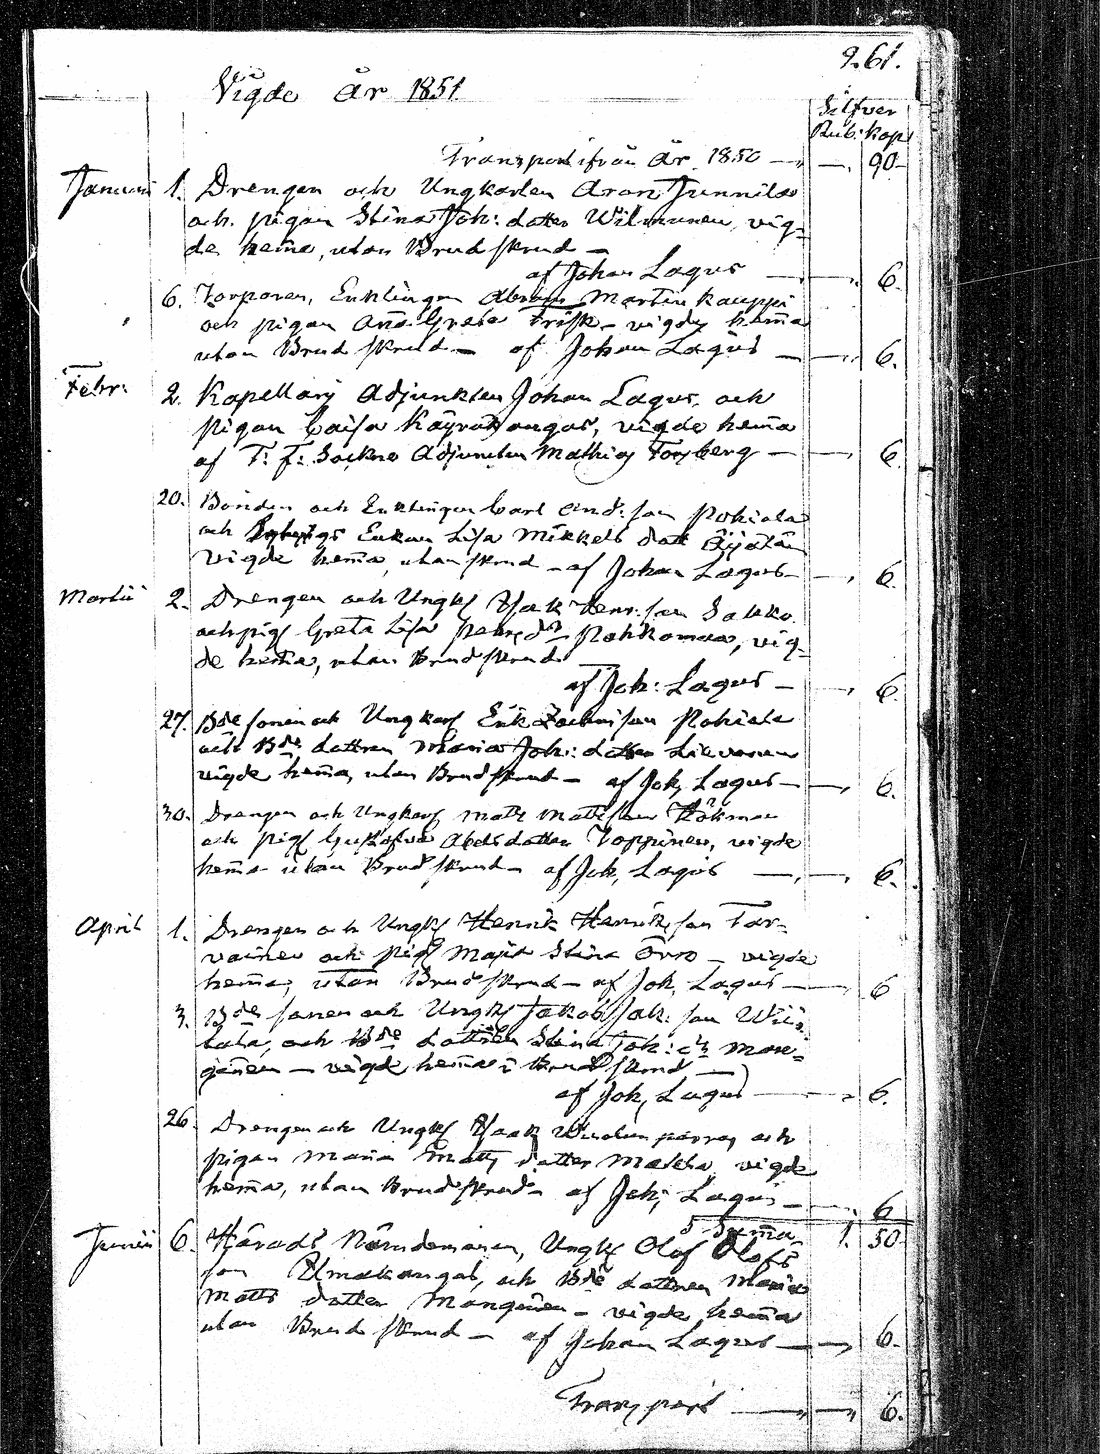 261.
Vigde år 1851
Silfver
Rub: kop
Transport ifrån år 1850 — — 90
Januari 1. Drengen och Ungkarlen Aron Junnila
och pigan Stina Joh: dotter Wilmunen, vig-
de hema, utan Brudskrud —
af Johan Lagus — — 6.
6. Torparen, Enklingen Abram Martin kauppi
och pigan Ana Greta Frisk — vigde hema
utan Brudskrud — af Johan Lagus — — 6.
Febr: 2. Kapellans Adjunkten Johan Lagus och
pigan Caisa Käyräkangas, vigde hema
af T: f: Sockne Adjuncten Mathias Forsberg — — 6.
20. Bonden och Enklingen Carl And: son Pohiola
och Enkan Lisa Mikkels dott Äijälän
vigde hema, utan skrud — af Johan Lagus — — 6.
Martii 2. Drengen och Ungk Isak Henr: son Sakko
och pig Greta Lisa Pehrsdr Pohkomaa, vig-
de hema, utan Brudskrud
af Joh: Lagus — — 6.
27. Bde sonen och Ungkarl Erik Zachrisson Pohiola
och Bde dottren Maria Joh: dotter
vigde hema, utan Brudskrud — af Joh, Lagus — — 6.
30. Drengen och Ungkarl Matts Mattsson Hökman
och pig Gustafva Abelsdotter Toppinen, vigde
hema utan Brudskrud — af Joh, Lagus — — 6.
April 1. Drengen och Ungk Henrik Henriksson Tar-
vainen och pig Maja Stina Övro — vigde
hema, utan Brudskrud — af Joh, Lagus — — 6
3. Bde sonen och Ungk Jakob Jak: son Wiis
tala, och Bde dottren Stina Joh: dr Mon-
genen — vigde hema i Brudskrud —
af Joh, Lagus — — 6.
26. Drengen och Ungk Isak och
pigan Maria Matts dotter Matela, vigde
hema, utan Brudskrud — af Joh, Lagus — — 6
S Suma 1. 50
Junii 6. Härads Nämndemannen, Ungk Olof Olofs
son Ylmakangas, och Bde dottren Maria
Matts dotter Mongenen — vigde hema
utan Brudskrud — af Johan Lagus — — 6.
Transport — — 6.